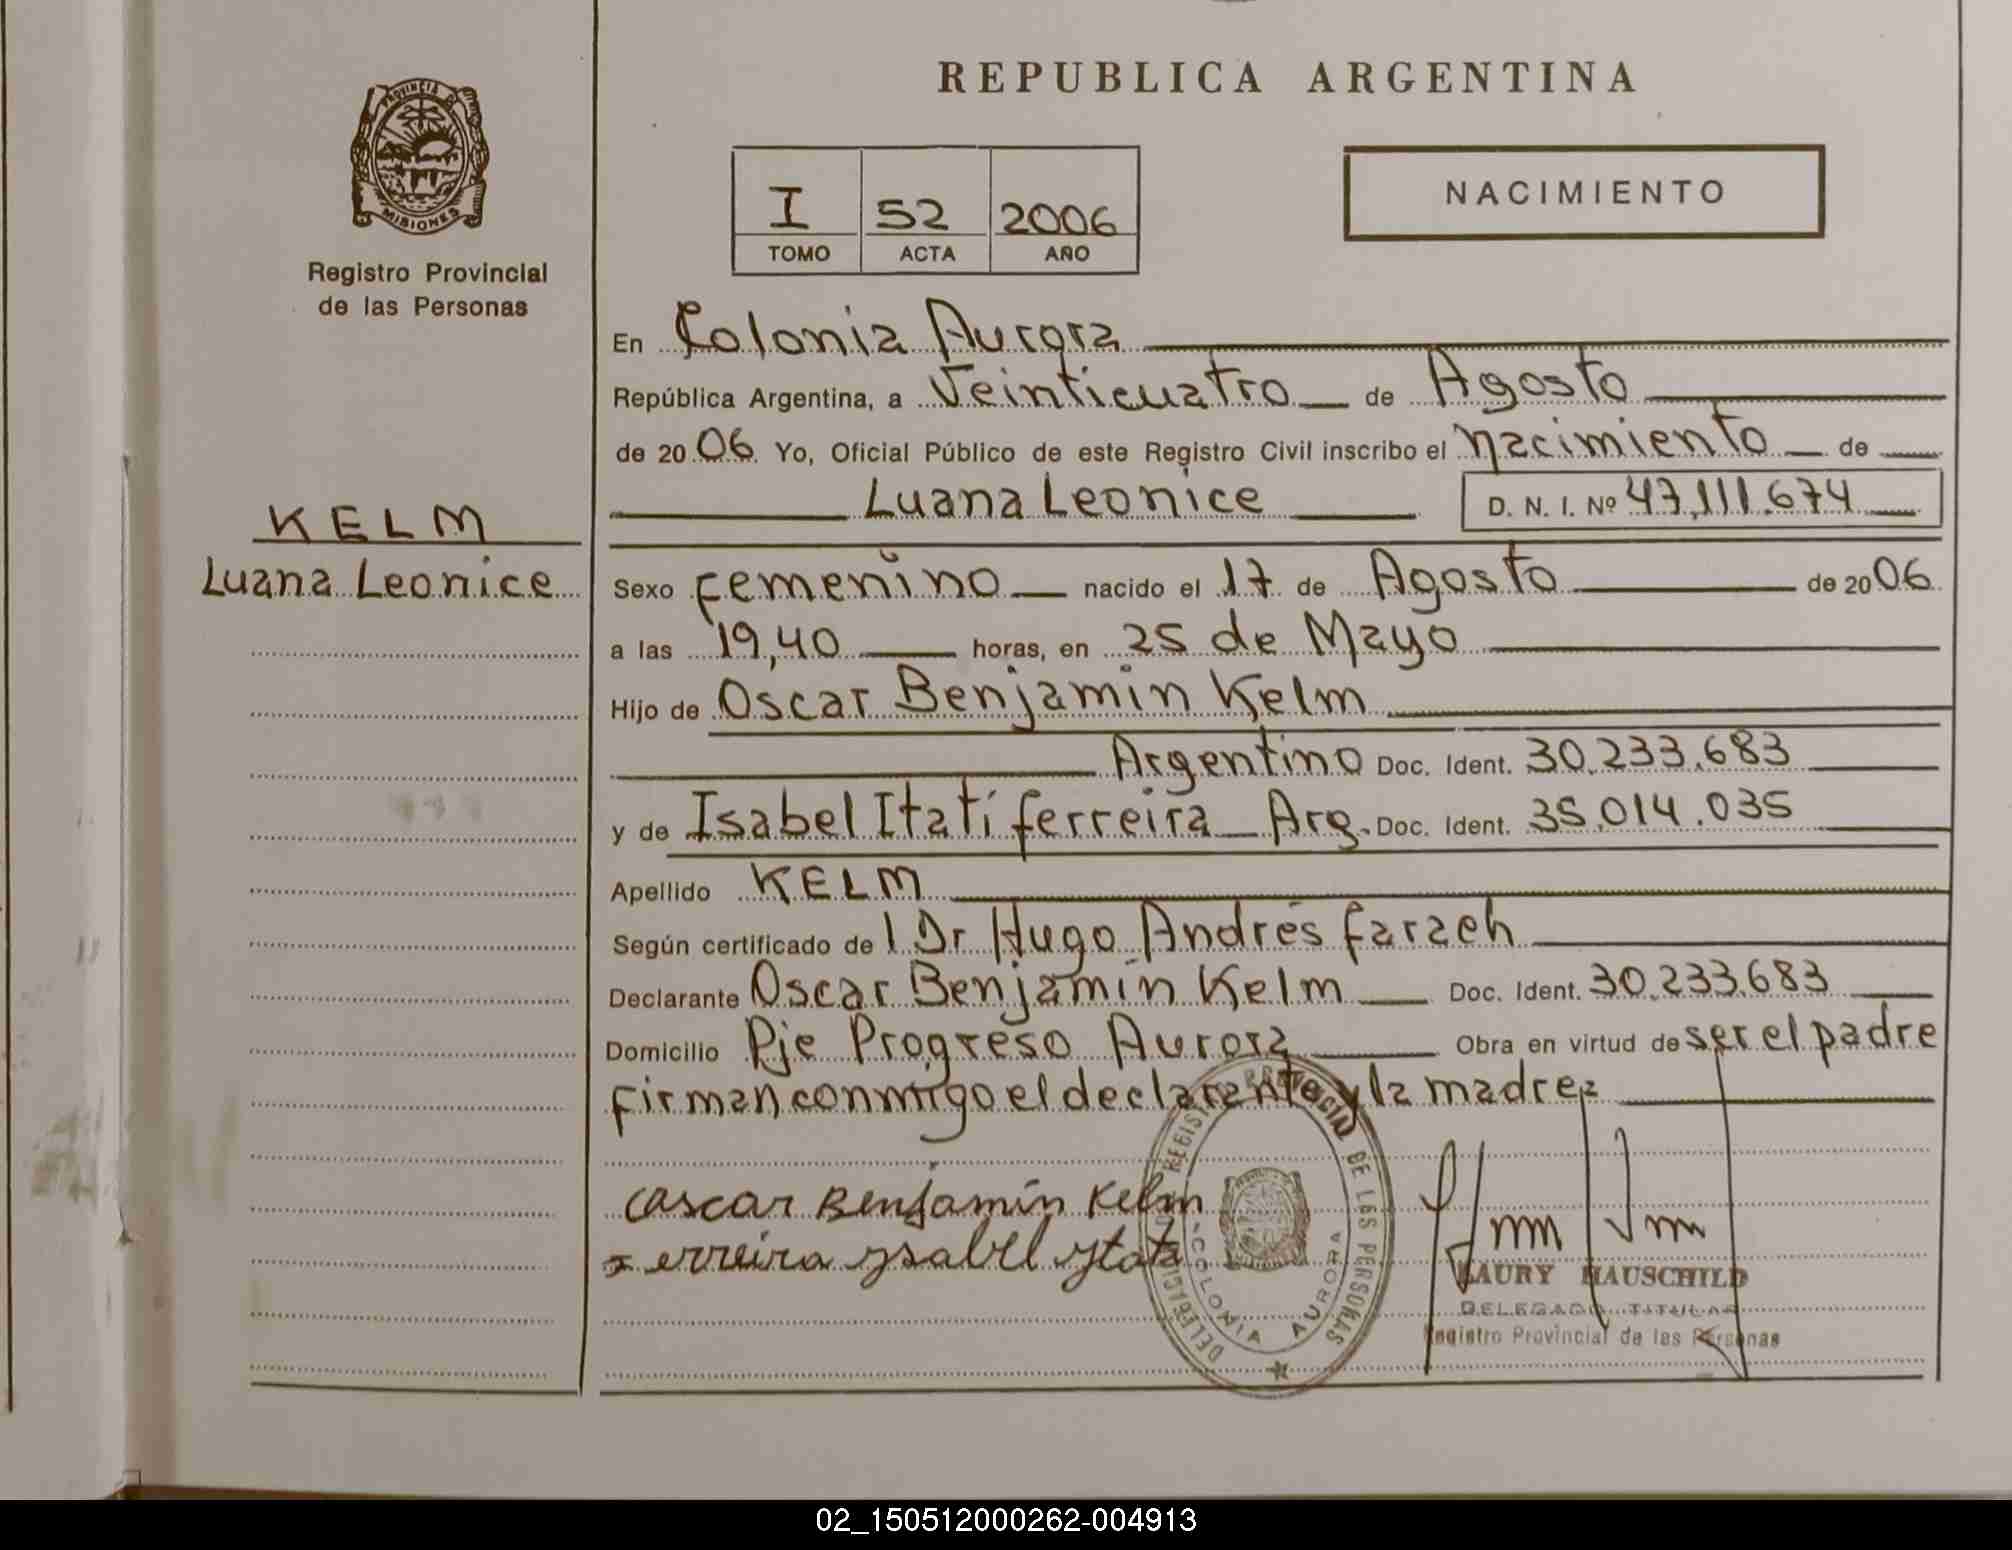 REPUBLICA ARGENTINA
PROVINCIA DE
MISIONES
Registro Provincial
de las Personas
I 52 2006
TOMO ACTA AÑO
NACIMIENTO
KELM
Luana Leonice
En Colonia Aurora
República Argentina, a Veinticuatro de Agosto
de 2006 Yo, Oficial Público de este Registro Civil inscribo el nacimiento de
Luana Leonice D. N. I. Nº 47,111.674
Sexo Femenino nacido el 17 de Agosto de 2006
a las 19,40 horas, en 25 de Mayo
Hijo de Oscar Benjamin Kelm
Argentino Doc. Ident. 30.233.683
y de Isabel Itatí Ferreira Arg. Doc. Ident. 35.014.035
Apellido KELM
Según certificado de l Dr Hugo Andrés Farach
Declarante Oscar Benjamín Kelm Doc. Ident. 30.233.683
Domicilio Pje Progreso Aurora Obra en virtud de ser el padre
firman conmigo el declarante y la madre
Oscar Benjamín Kelm
Ferreira ysabel ytati
REGISTRO PROVINCIAL DE LAS PERSONAS
DELEGACION
COLONIA AURORA
LAURY HAUSCHILD
DELEGADO TITULAR
Registro Provincial de las Personas
02_150512000262-004913